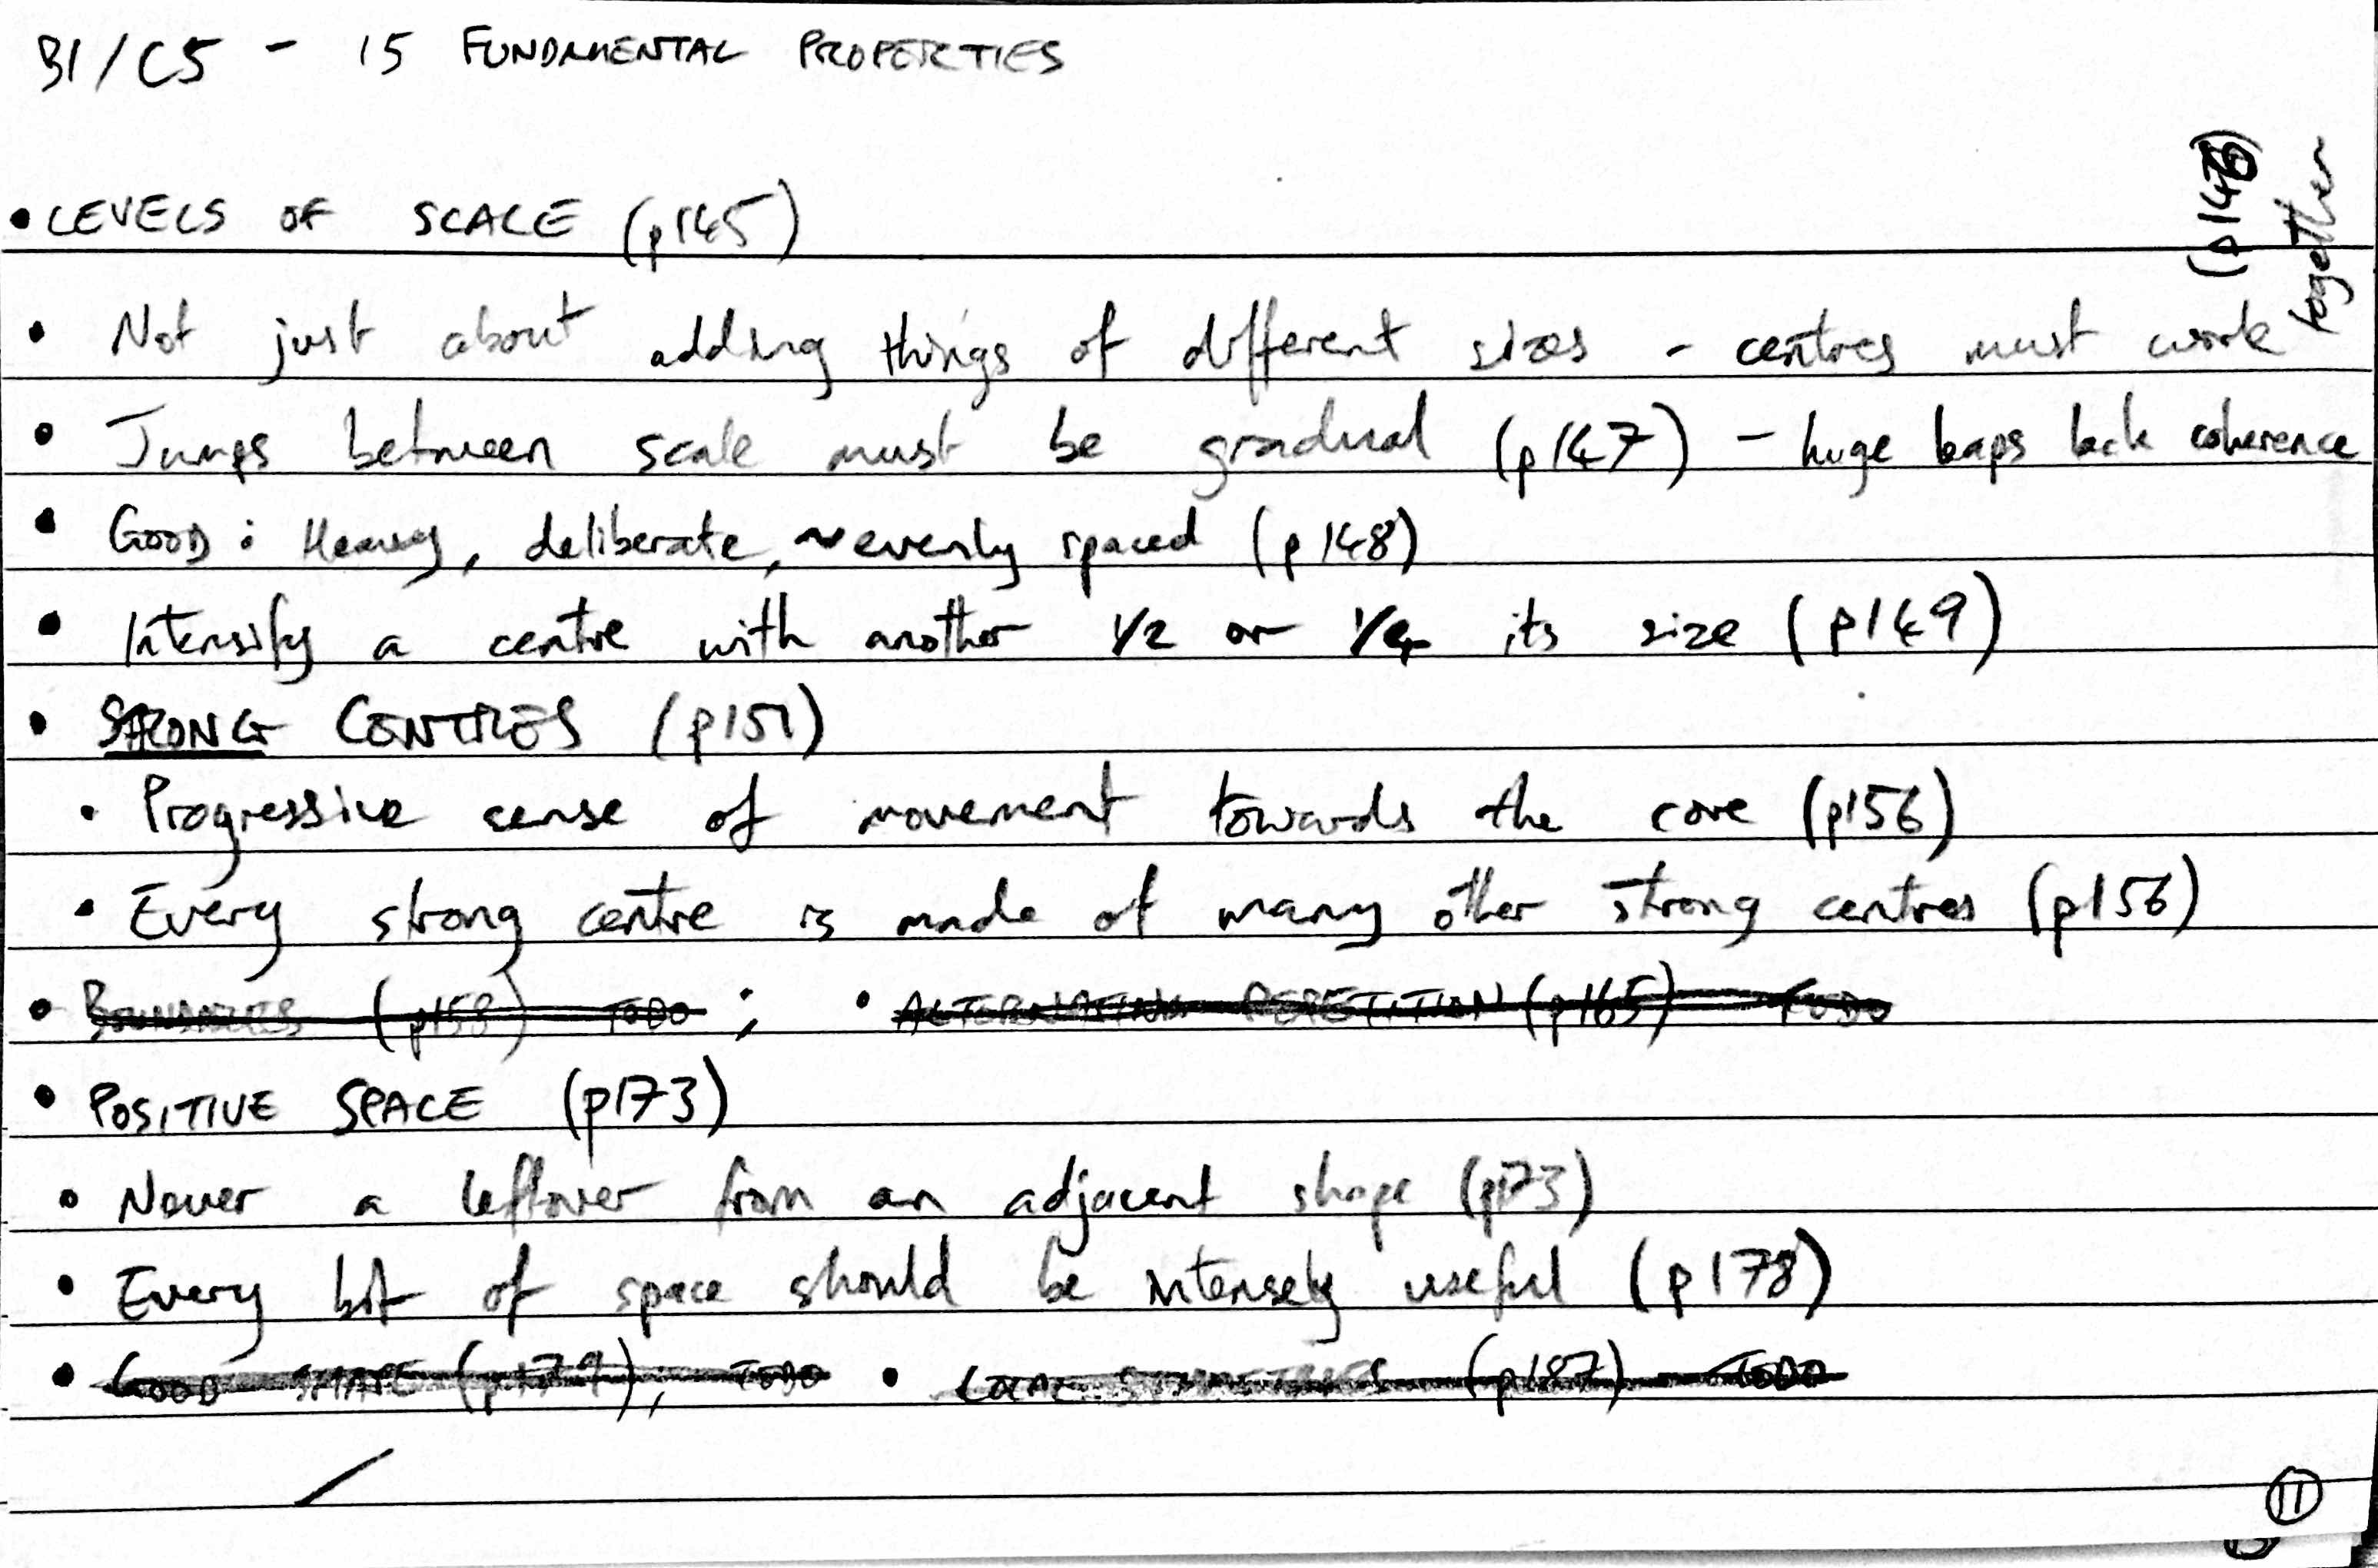 B1/C5 - 15 FUNDAMENTAL PROPERTIES
• LEVELS OF SCALE (p145)
• Not just about adding things of different sizes - centres must work together (p146)
• Jumps between scale must be gradual (p147) - huge leaps lack coherence
• GOOD: Heavy, deliberate, ~evenly spaced (p148)
• Intensify a centre with another 1/2 or 1/4 its size (p149)
• STRONG CENTRES (p151)
• Progressive sense of movement towards the core (p156)
• Every strong centre is made of many other strong centres (p156)
• BOUNDARIES (p158) TODO; • ALTERNATING REPETITION (p165) TODO
• POSITIVE SPACE (p173)
• Never a leftover from an adjacent shape (p173)
• Every bit of space should be intensely useful (p178)
• GOOD SHAPE (p179); TODO • LOCAL SYMMETRIES (p187) - TODO
11